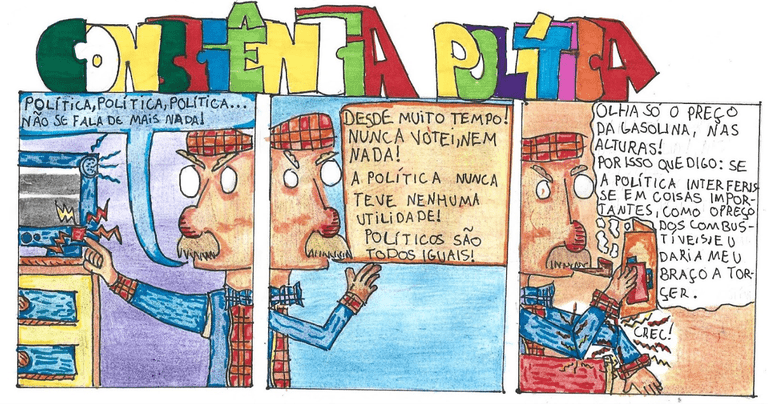 CONSCIÊNCIA POLÍTICA
POLÍTICA, POLÍTICA, POLÍTICA...
NÃO SE FALA DE MAIS NADA!
DESDE MUITO TEMPO!
NUNCA VOTEI, NEM
NADA!
A POLÍTICA NUNCA
TEVE NENHUMA
UTILIDADE!
POLÍTICOS SÃO
TODOS IGUAIS!
OLHA SÓ O PREÇO
DA GASOLINA, NAS
ALTURAS!
POR ISSO QUE DIGO: SE
A POLÍTICA INTERFERIS-
SE EM COISAS IMPOR-
TANTES, COMO O PREÇO
DOS COMBUS-
TÍVEIS, EU
DARIA MEU
BRAÇO A TOR-
ÇER.
CREC!